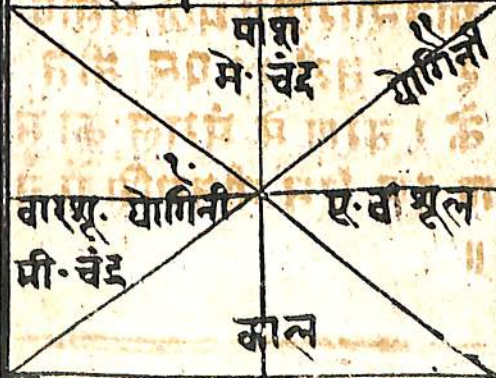 पाश
मे· चंद्र
१
योगिनी
१·
वारशू· योगिनी
मी· चंद्र
शूल
काल